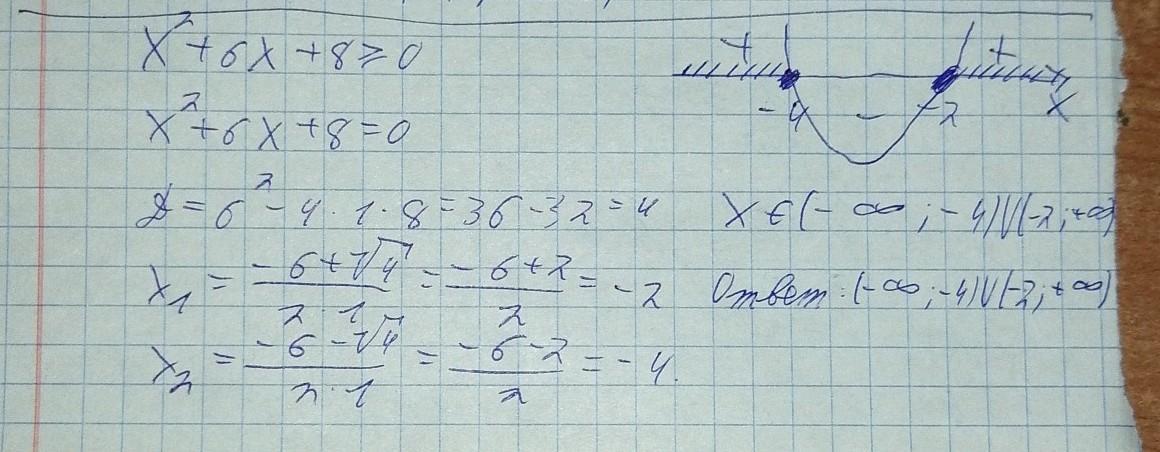 x² + 6x + 8 ≥ 0
x² + 6x + 8 = 0
D = 6² - 4 · 1 · 8 = 36 - 32 = 4
x₁ = (-6 + √4) / (2 · 1) = (-6 + 2) / 2 = -2
x₂ = (-6 - √4) / (2 · 1) = (-6 - 2) / 2 = -4.
+ +
-4 - -2 x
x ∈ (-∞; -4) ∪ (-2; +∞)
Ответ: (-∞; -4) ∪ (-2; +∞)